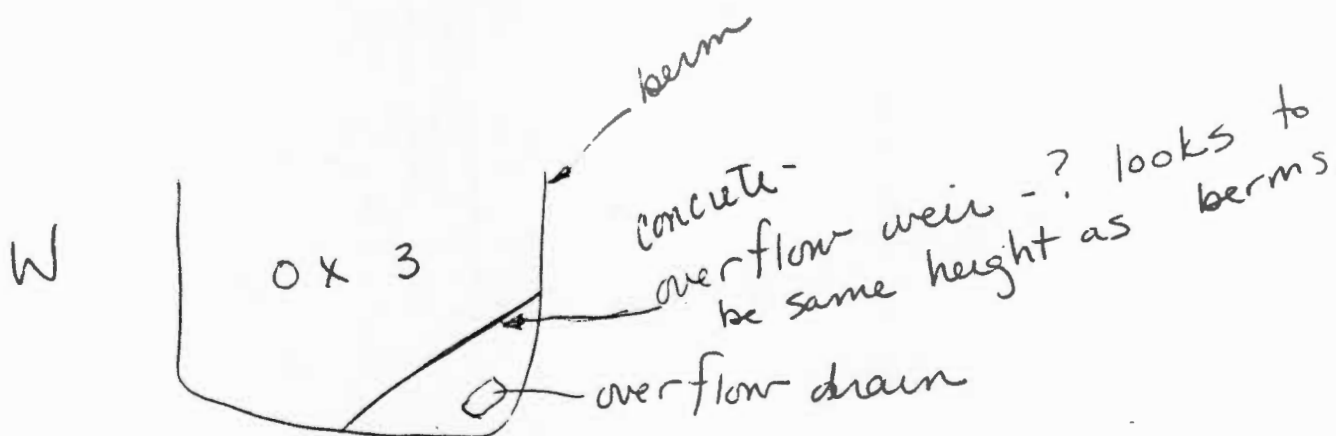 berm
concrete-
overflow weir -? looks to
be same height as berms
W
OX 3
overflow drain